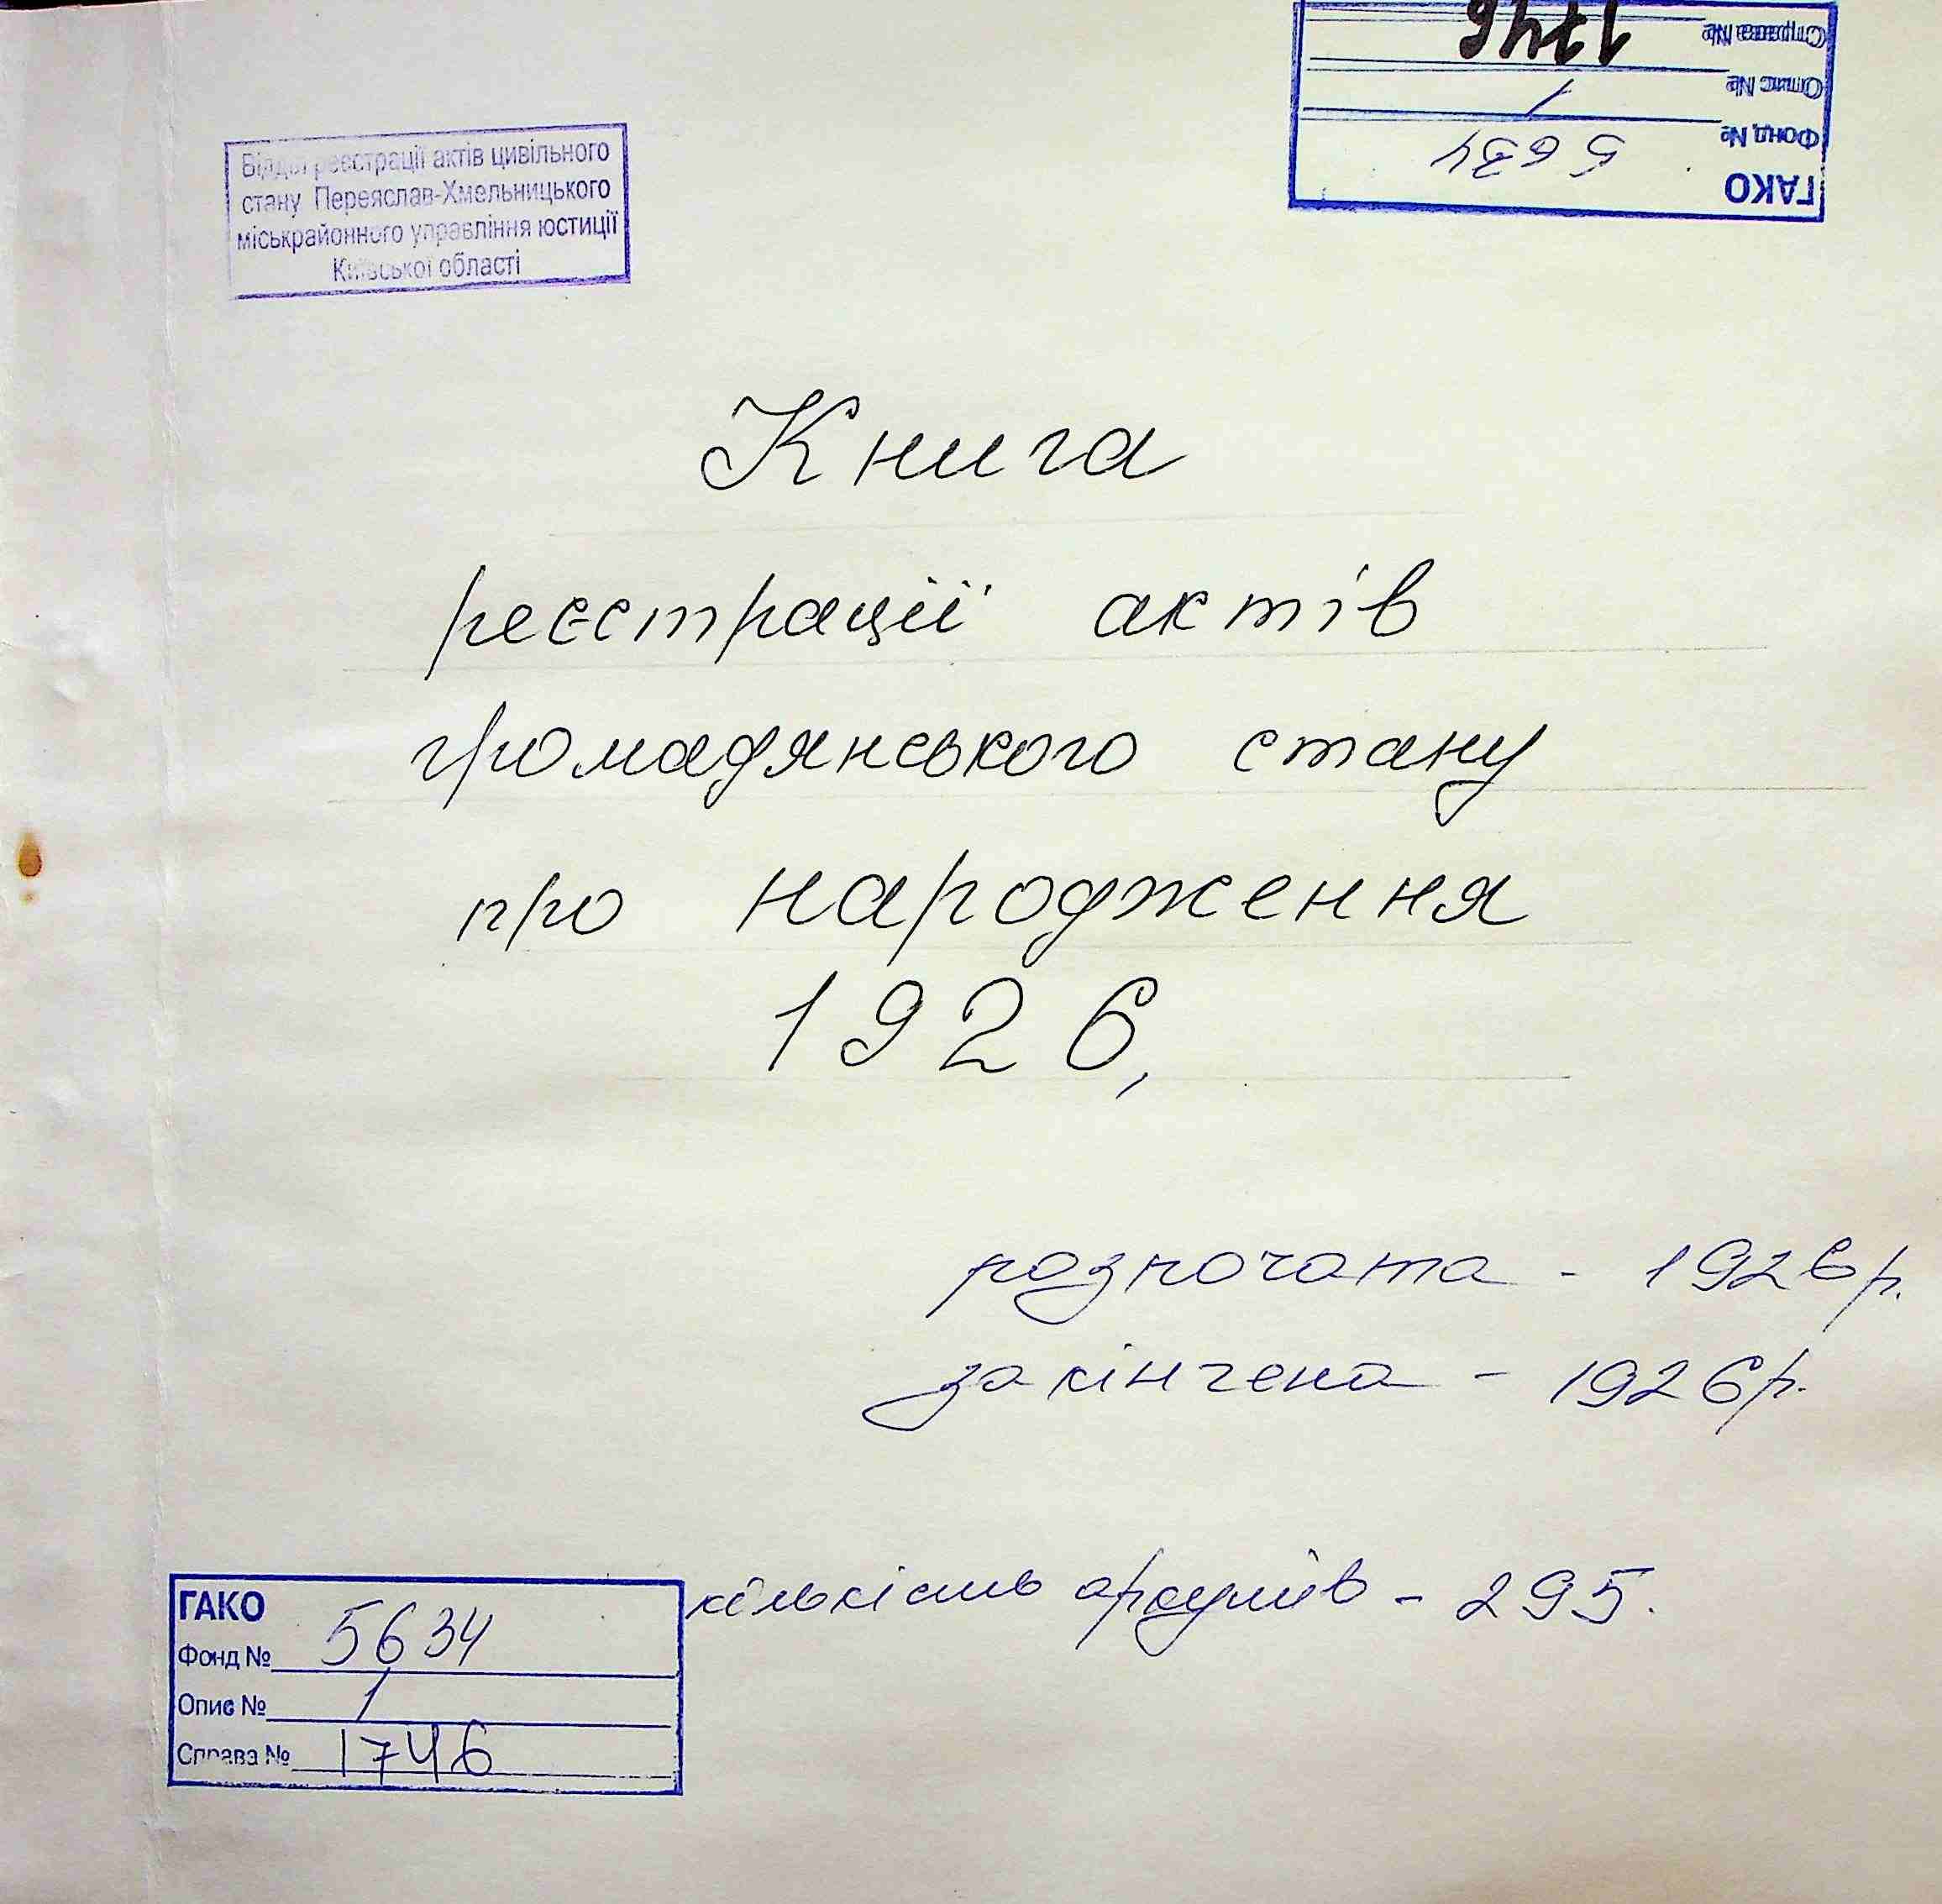 Справа № 1746
Опис № 1
Фонд № 5634
ГАКО
Відділ реєстрації актів цивільного
стану Переяслав-Хмельницького
міськрайонного управління юстиції
Київської області
Книга
реєстрації актів
громадянського стану
про народження
1926,
розпочата - 1926р.
закінчена - 1926р.
кількість аркушів - 295.
ГАКО
Фонд № 5634
Опис № 1
Справа № 1746